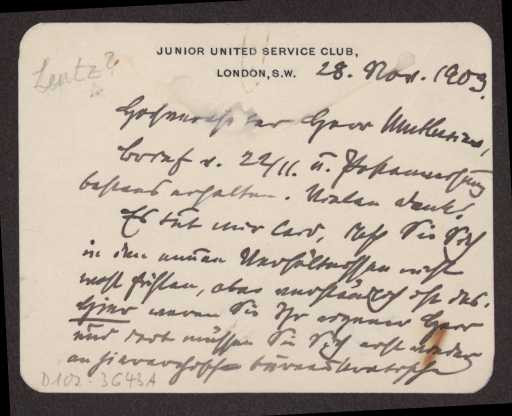 Lentz?
JUNIOR UNITED SERVICE CLUB,
LONDON, S.W. 28. Nov. 1903.
Hochverehrter Herr Muthesius,
Brief v. 22/11. u. Postanweisung
bestens erhalten. Vielen Dank!
Es tut mir leid, daß Sie Sich
in den neuen Verhältnissen nicht
wohl fühlen, aber verständlich ist das.
Hier waren Sie Ihr eigener Herr
und dort müssen Sie Sich erst wieder
an hierarchisch bureaukratische
D102-3643A